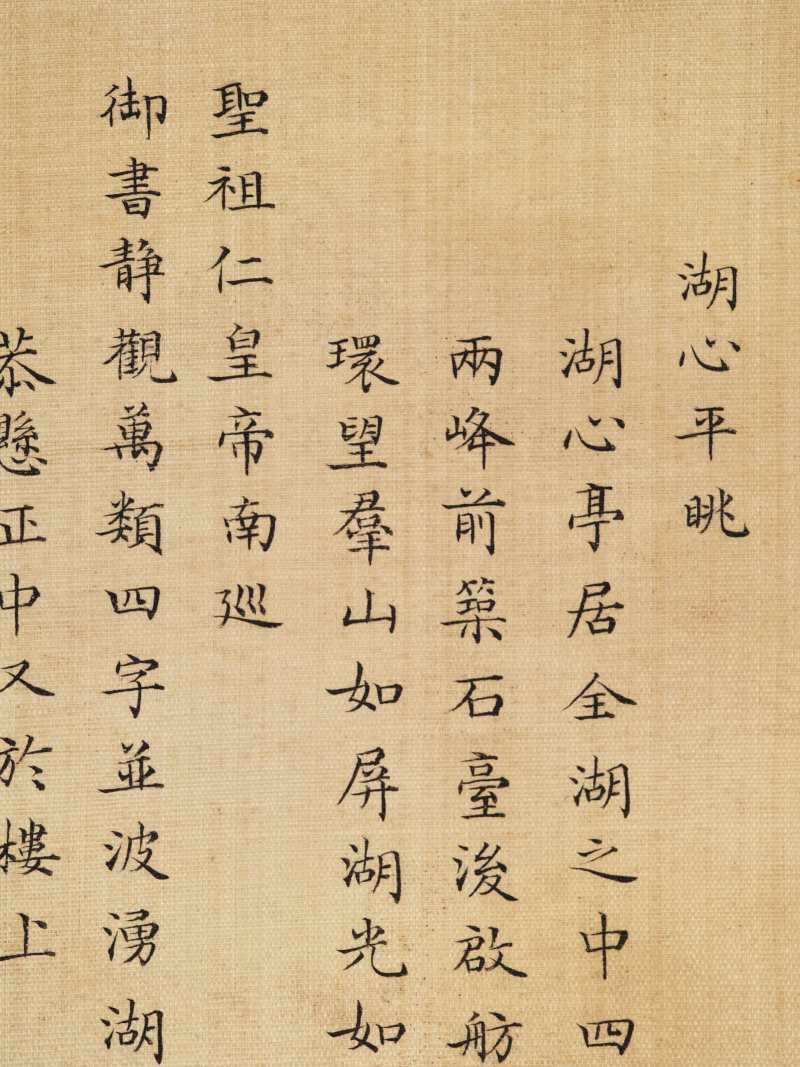 湖心平眺
湖心亭居全湖之中四
兩峰前築石臺後啟舫
環望羣山如屏湖光如
聖祖仁皇帝南巡
御書靜觀萬類四字並波湧湖
恭懸正中又於樓上